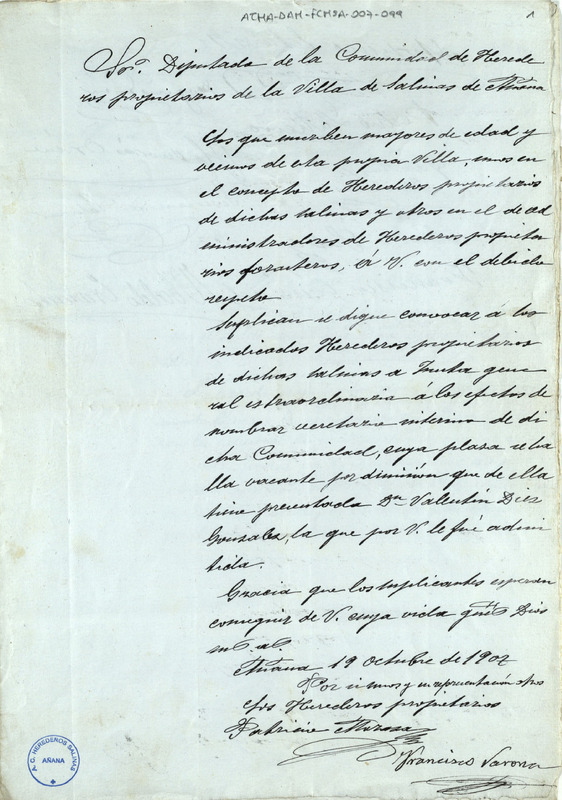 ATHA-DAH-FCMSA-007-099
1
Sor. Diputado de la Comunidad de Herede
ros propietarios de la Villa de Salinas de Añana
Los que suscriben mayores de edad y
vecinos de esta propia Villa unos en
el concepto de Herederos propietarios
de dichas salinas y otros en el de ad
ministradores de Herederos propieta
rios forasteros, á V. con el debido
respeto
Suplican se digne convocar á los
indicados Herederos propietarios
de dichas salinas a Junta gene
ral extraordinaria á los efectos de
nombrar secretario interino de di
cha Comunidad, cuya plaza se ha
lla vacante por dimisión que de ella
tiene presentada Dn. Valentín Diez
Gonzalez, la que por V. le fué admi
tida.
Gracia que los suplicantes esperan
conseguir de V. cuya vida gue. Dios
m. a.
Añana 19 Octubre de 1907
Por si unos y en representación otros
Los Herederos propietarios
Patricio
Francisco Varona
A.C. HEREDEROS SALINAS
AÑANA